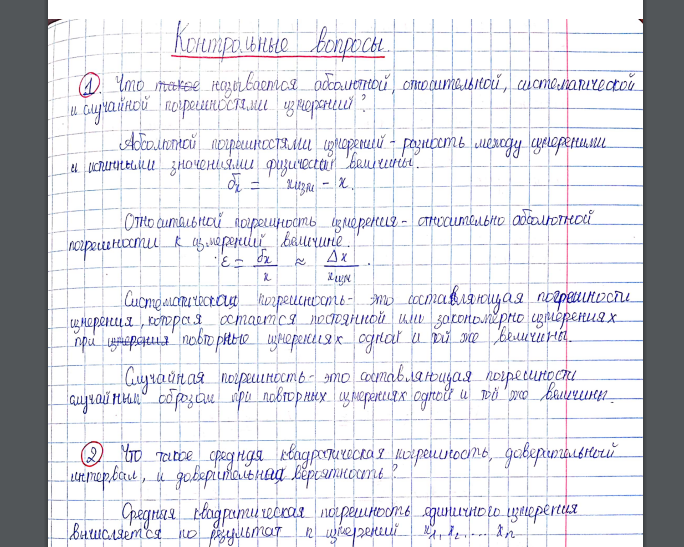 Контрольные вопросы.
1. Что такое называется абсолютной, относительной, систематической
и случайной погрешностями измерений?
Абсолютной погрешностями измерений - разность между измереными
и истинными значениями физической величины.
δx = xизм - x.
Относительной погрешность измерения - относительно абсолютной
погрешности к измерений величине.
ε = δx/x ≈ Δx/xизм.
Систематическая погрешность - это составляющая погрешности
измерения, которая остается постоянной или закономерно измерениях
при измерения повторные измерениях одной и той же величины.
Случайная погрешность - это составляющая погрешности
случайным образом при повторных измерениях одной и той же величины.
2. Что такое средняя квадратическая погрешность, доверительный
интервал, и доверительная вероятность?
Средняя квадратическая погрешность единичного измерения
вычисляется по результат n измерений x1, x2, ... xn.